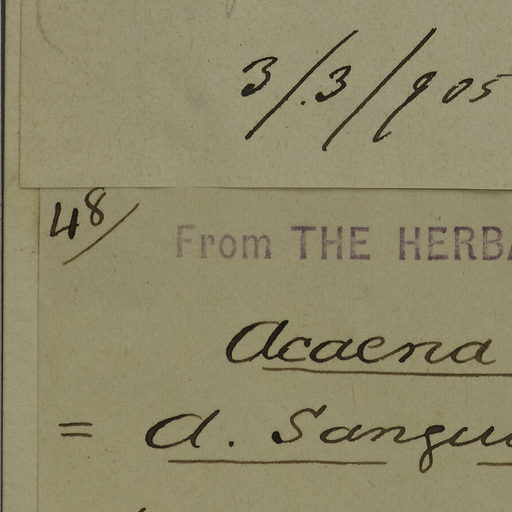 3/.3/905
48/
From THE HERBA
Acaena
= A. Sangu